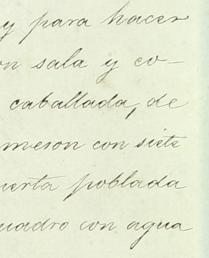 y para hacer
on sala y co-
caballada, de
meson con siete
uerta poblada
uadro con agua